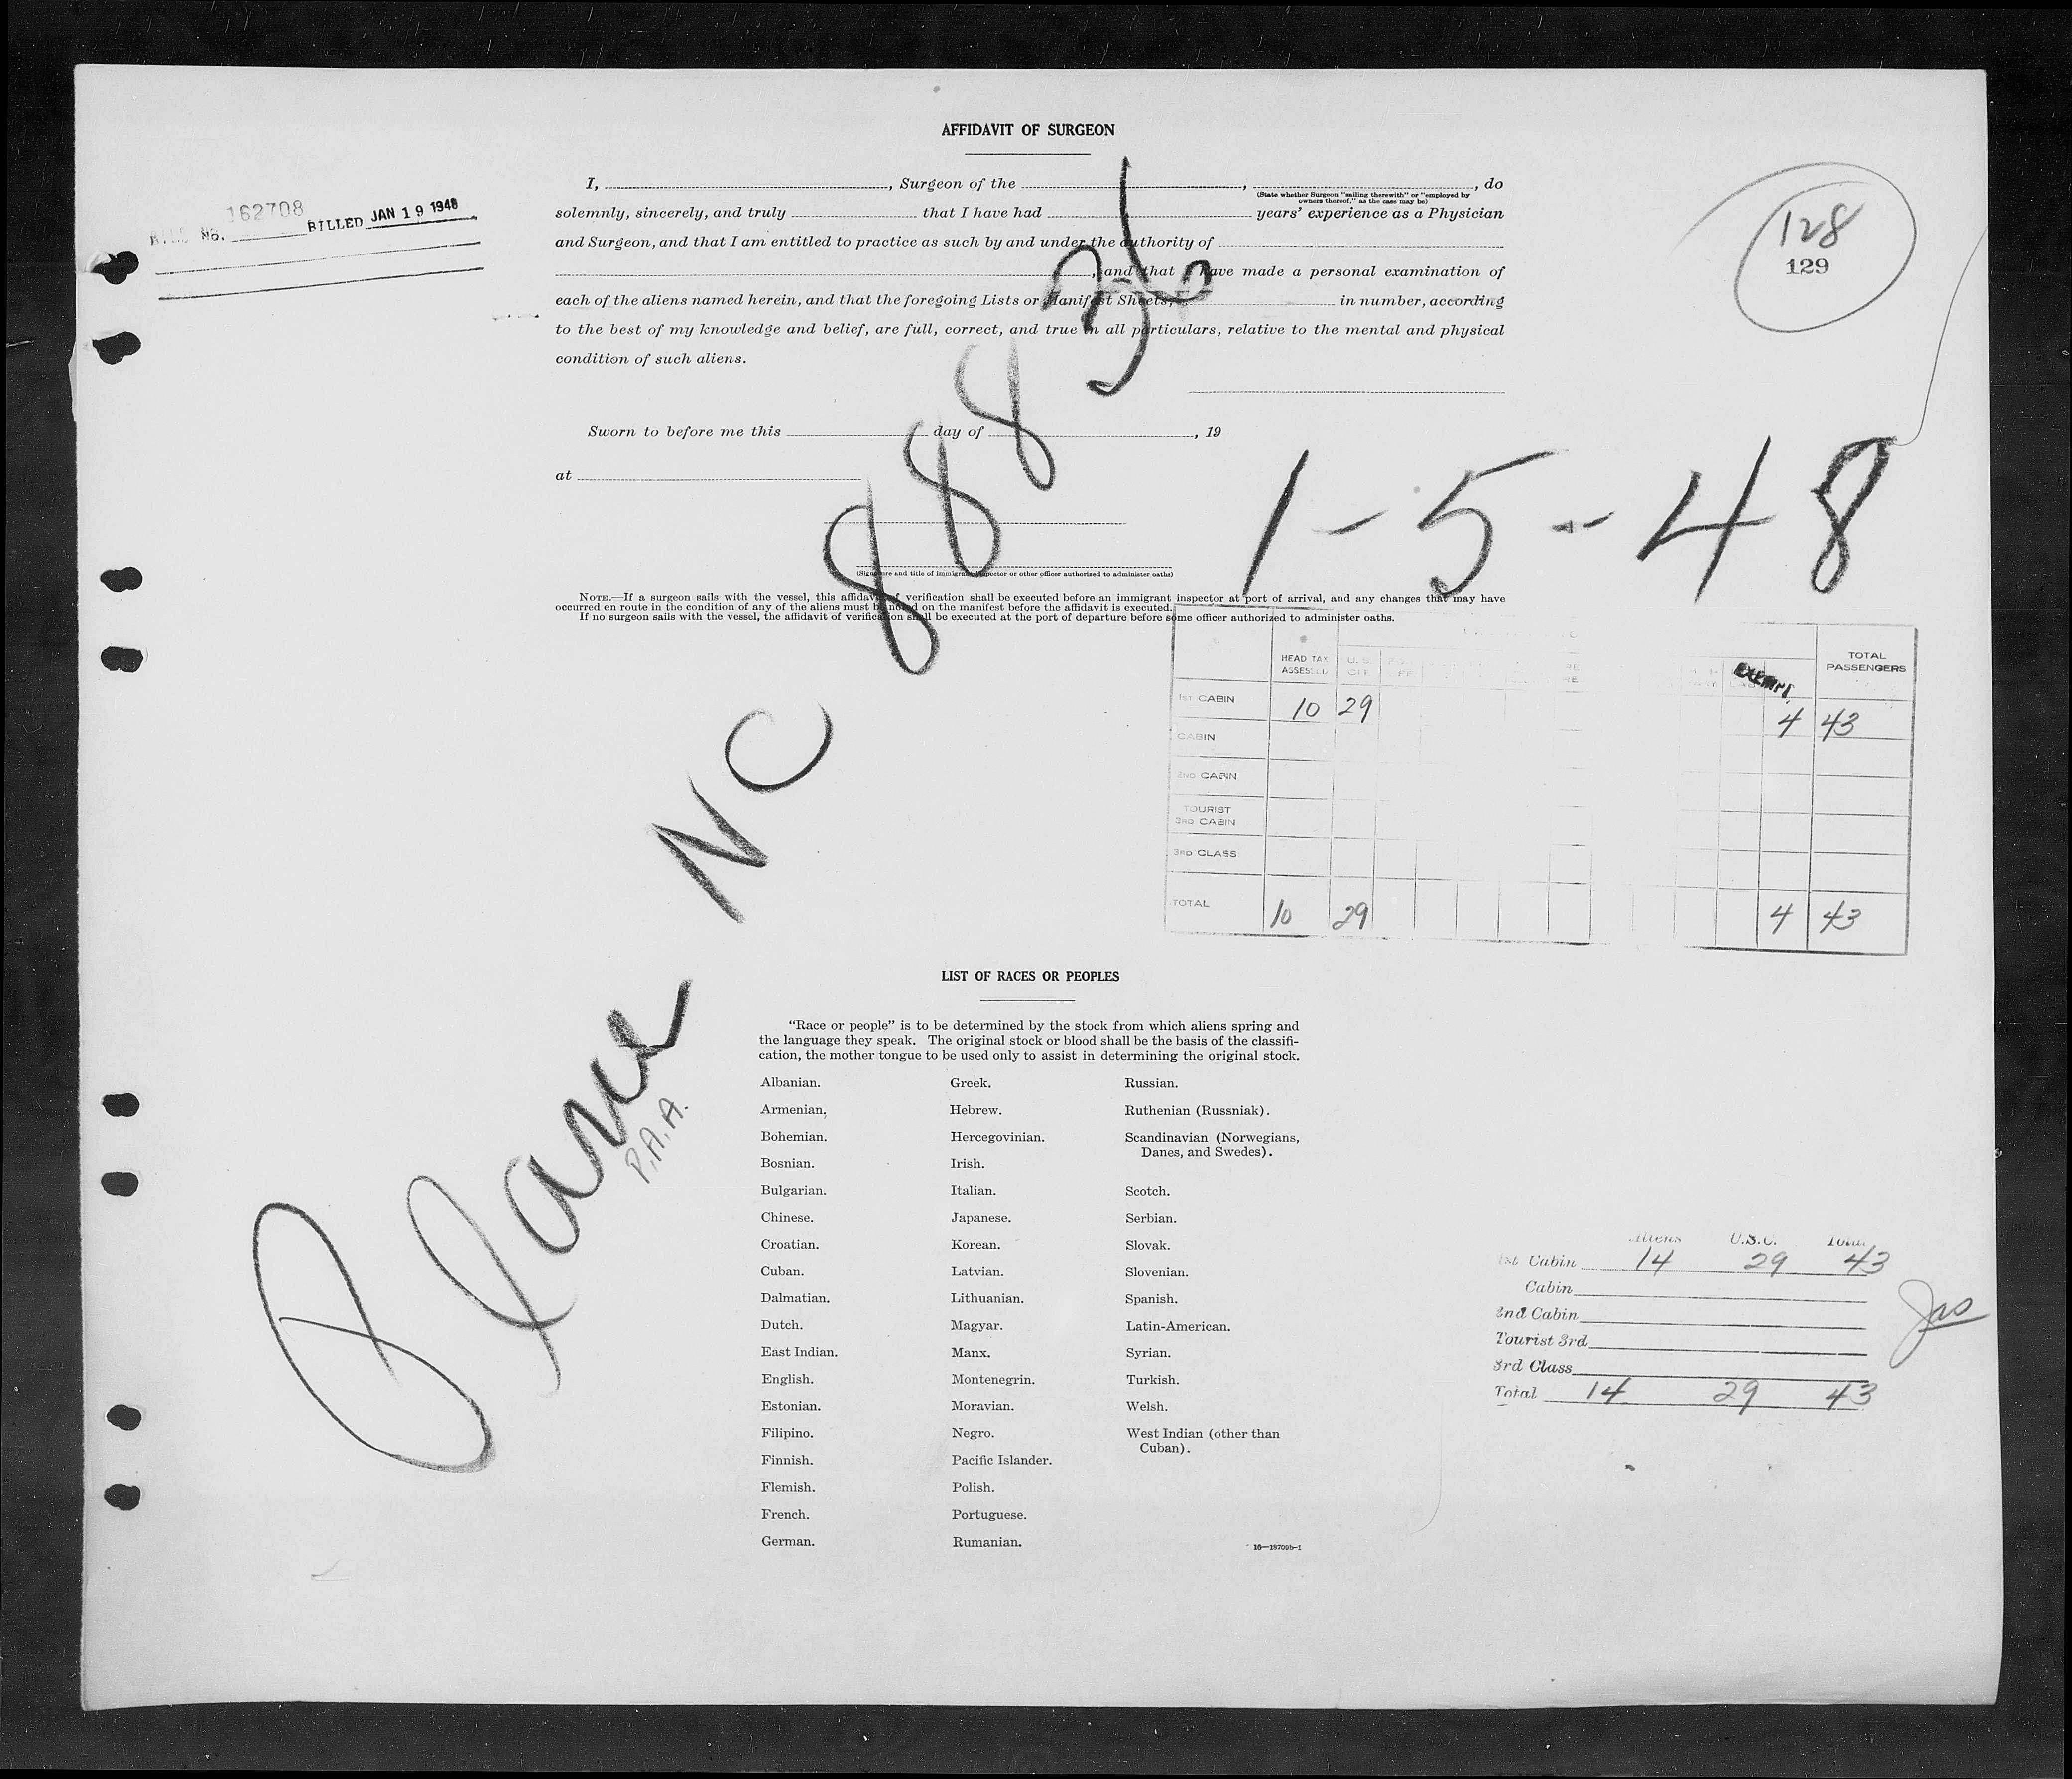 AFFIDAVIT OF SURGEON
I, , Surgeon of the , , do
(State whether Surgeon "sailing therewith" or "employed by
owners thereof," as the case may be)
solemnly, sincerely, and truly that I have had years' experience as a Physician
and Surgeon, and that I am entitled to practice as such by and under the authority of
, and that I have made a personal examination of
each of the aliens named herein, and that the foregoing Lists or Manifest Sheets, in number, according
to the best of my knowledge and belief, are full, correct, and true in all particulars, relative to the mental and physical
condition of such aliens.
Sworn to before me this day of , 19
at
(Signature and title of immigrant inspector or other officer authorized to administer oaths)
NOTE.—If a surgeon sails with the vessel, this affidavit of verification shall be executed before an immigrant inspector at port of arrival, and any changes that may have
occurred en route in the condition of any of the aliens must be noted on the manifest before the affidavit is executed.
If no surgeon sails with the vessel, the affidavit of verification shall be executed at the port of departure before some officer authorized to administer oaths.
162708
No. BILLED JAN 19 1948
128
129
1-5-48
Plane NC 88836
P.A.A.
HEAD TAX ASSESSED U.S. CIT EXEMPT TOTAL PASSENGERS
1ST CABIN 10 29 4 43
CABIN
2ND CABIN
TOURIST
3RD CABIN
3RD CLASS
TOTAL 10 29 4 43
LIST OF RACES OR PEOPLES
"Race or people" is to be determined by the stock from which aliens spring and
the language they speak. The original stock or blood shall be the basis of the classifi-
cation, the mother tongue to be used only to assist in determining the original stock.
Albanian.
Armenian.
Bohemian.
Bosnian.
Bulgarian.
Chinese.
Croatian.
Cuban.
Dalmatian.
Dutch.
East Indian.
English.
Estonian.
Filipino.
Finnish.
Flemish.
French.
German.
Greek.
Hebrew.
Hercegovinian.
Irish.
Italian.
Japanese.
Korean.
Latvian.
Lithuanian.
Magyar.
Manx.
Montenegrin.
Moravian.
Negro.
Pacific Islander.
Polish.
Portuguese.
Rumanian.
Russian.
Ruthenian (Russniak).
Scandinavian (Norwegians,
Danes, and Swedes).
Scotch.
Serbian.
Slovak.
Slovenian.
Spanish.
Latin-American.
Syrian.
Turkish.
Welsh.
West Indian (other than
Cuban).
16—18709b-1
Aliens U.S.C. Total
1st Cabin 14 29 43
Cabin
2nd Cabin
Tourist 3rd
3rd Class
Total 14 29 43